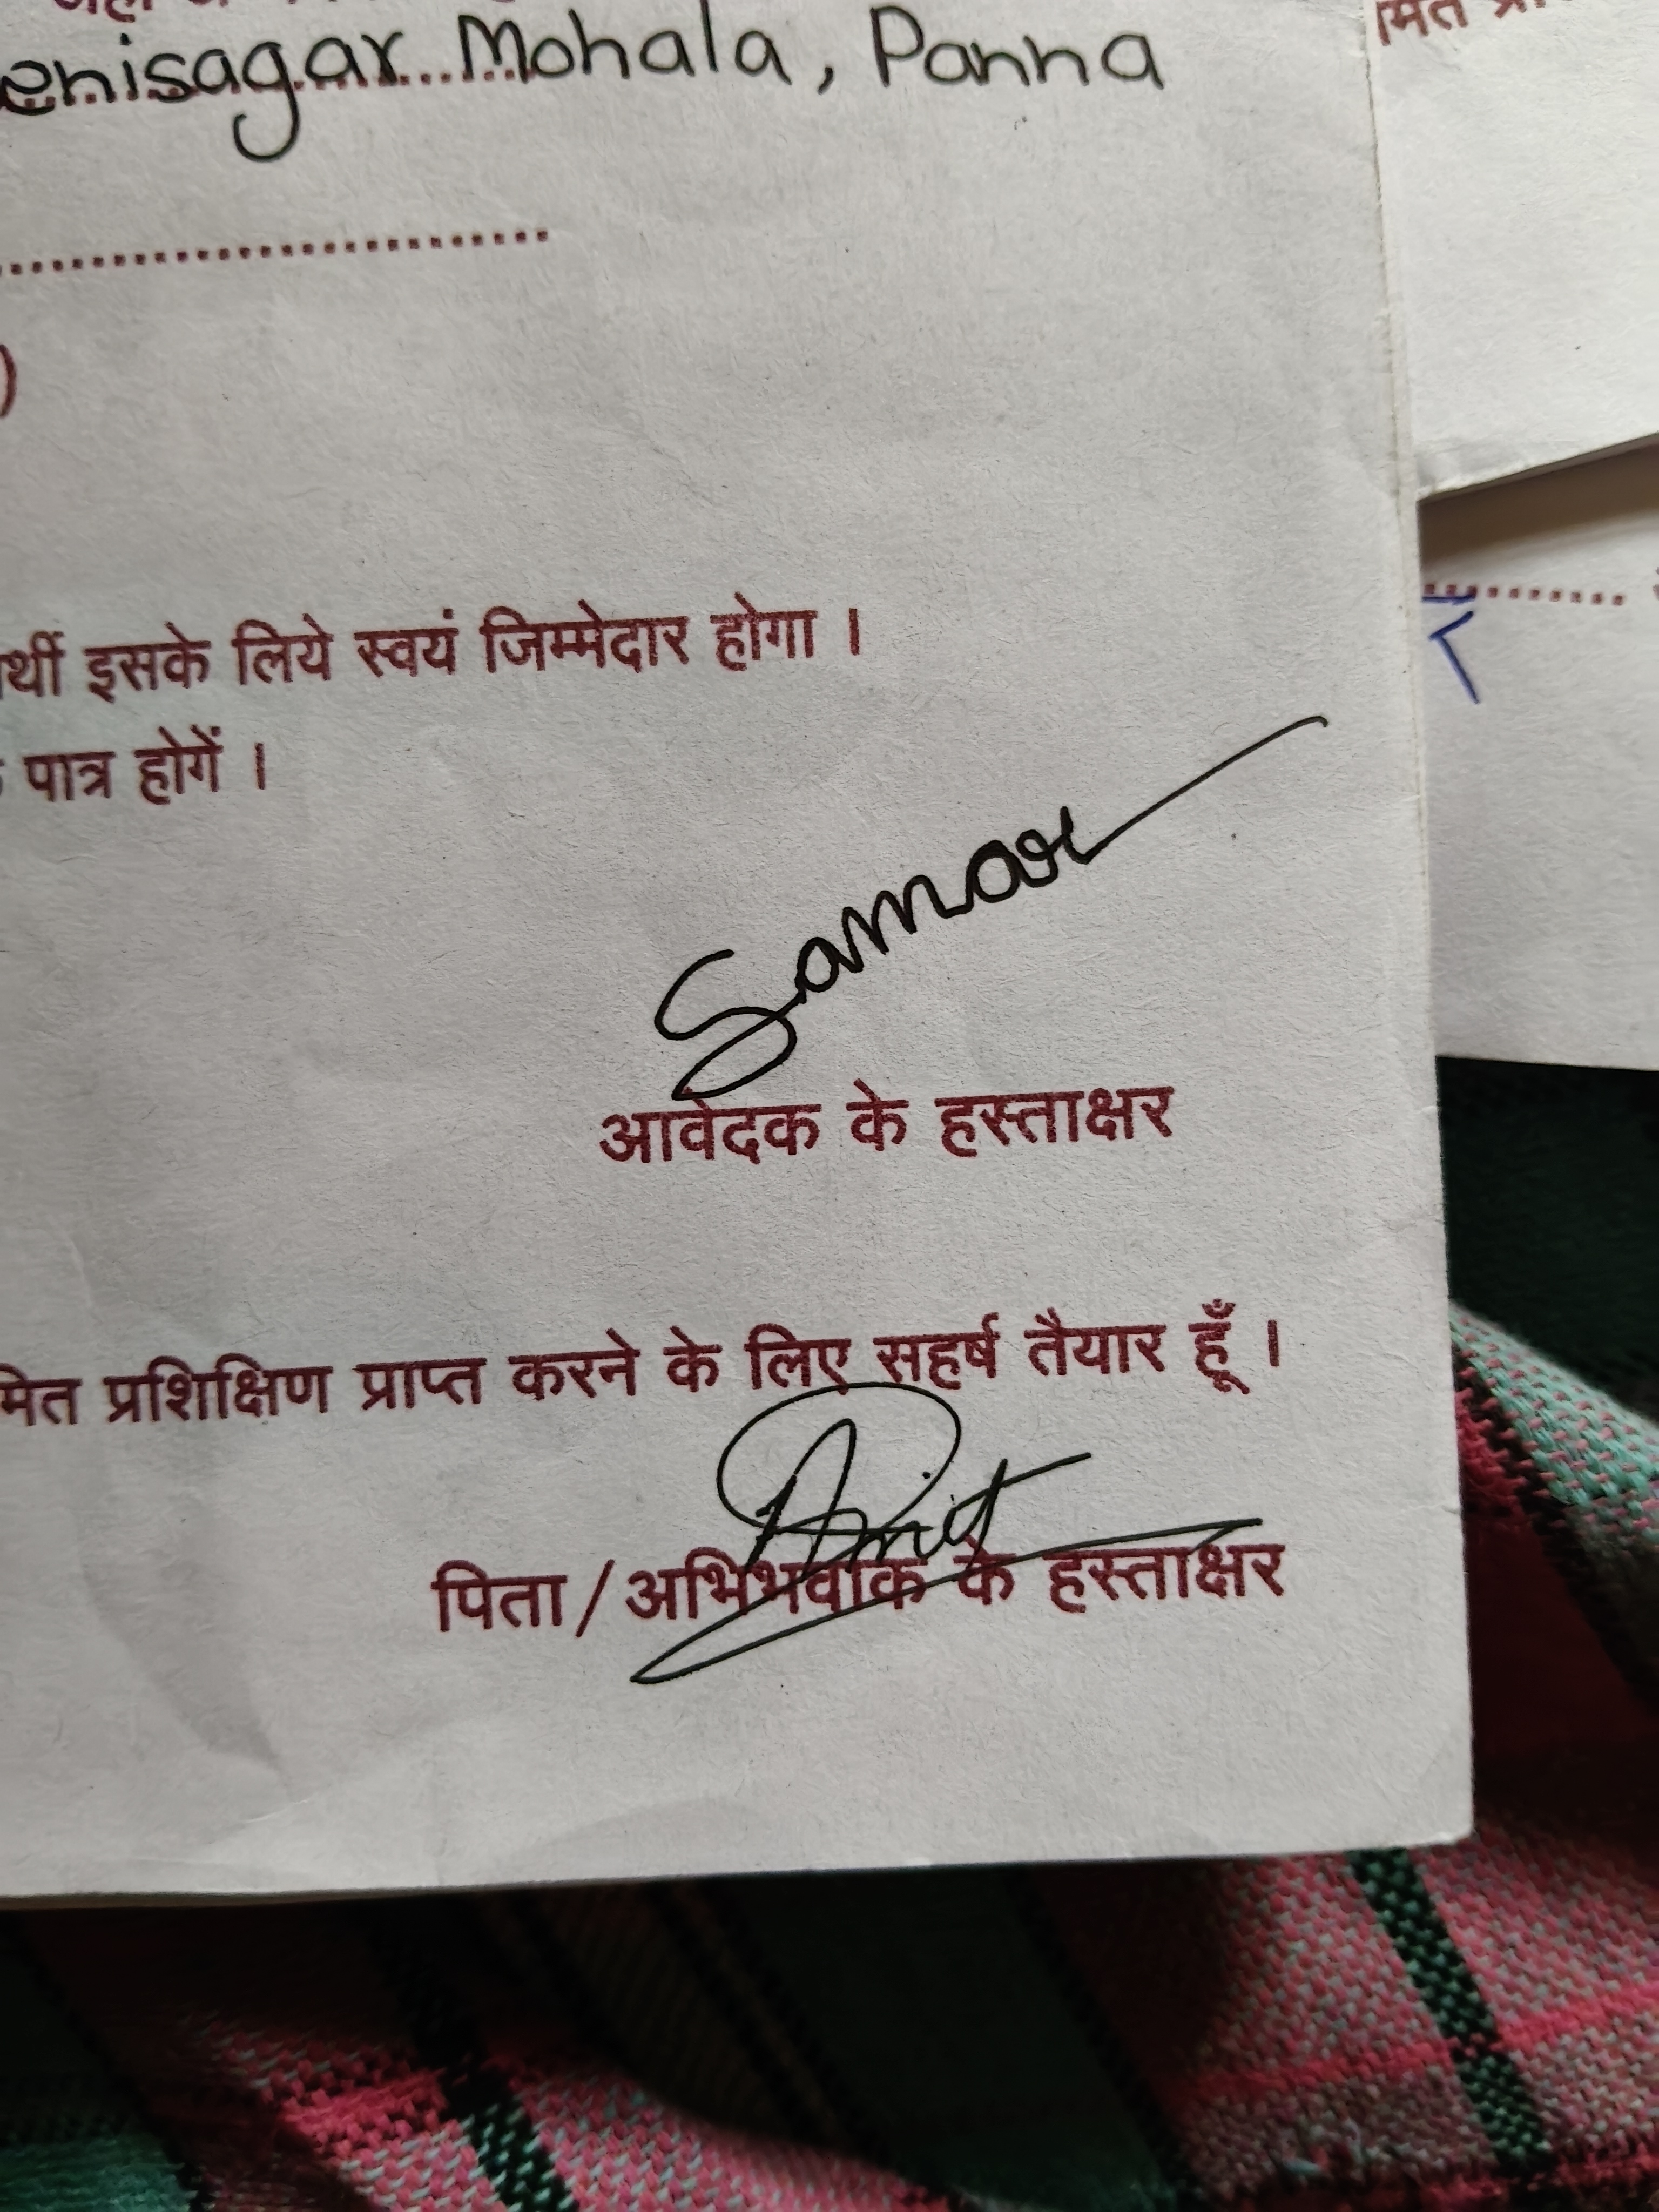 enisagar Mohala, Panna
र्थी इसके लिये स्वयं जिम्मेदार होगा ।
पात्र होगें ।
Samar
आवेदक के हस्ताक्षर
मित प्रशिक्षिण प्राप्त करने के लिए सहर्ष तैयार हूँ ।
Amit
पिता/अभिभवाक के हस्ताक्षर